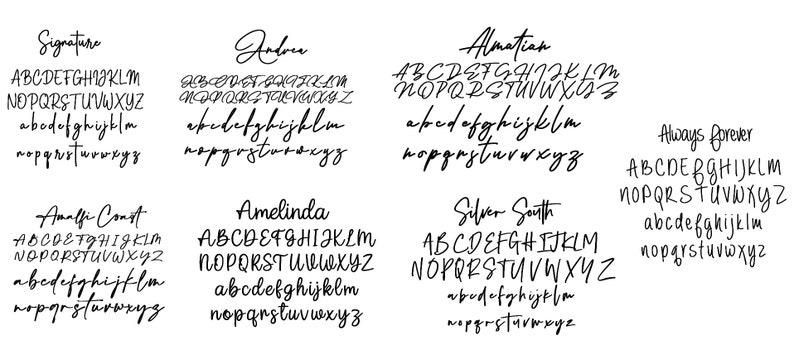 Signature
ABCDEFGHIJKLM
NOPQRSTUVWXYZ
abcdefghijklm
nopqrstuvwxyz
Andrea
ABCDEFGHIJKLM
NOPQRSTUVWXYZ
abcdefghijklm
nopqrstuvwxyz
Almatian
ABCDEFGHIJKLM
NOPQRSTUVWXYZ
abcdefghijklm
nopqrstuvwxyz
Amalfi Coast
ABCDEFGHIJKLM
NOPQRSTUVWXYZ
abcdefghijklm
nopqrstuvwxyz
Amelinda
ABCDEFGHIJKLM
NOPQRSTUVWXYZ
abcdefghijklm
nopqrstuvwxyz
Silver South
ABCDEFGHIJKLM
NOPQRSTUVWXYZ
abcdefghijklm
nopqrstuvwxyz
Always forever
ABCDEFGHIJKLM
NOPQRSTUVWXYZ
abcdefghijklm
nopqrstuvwxyz